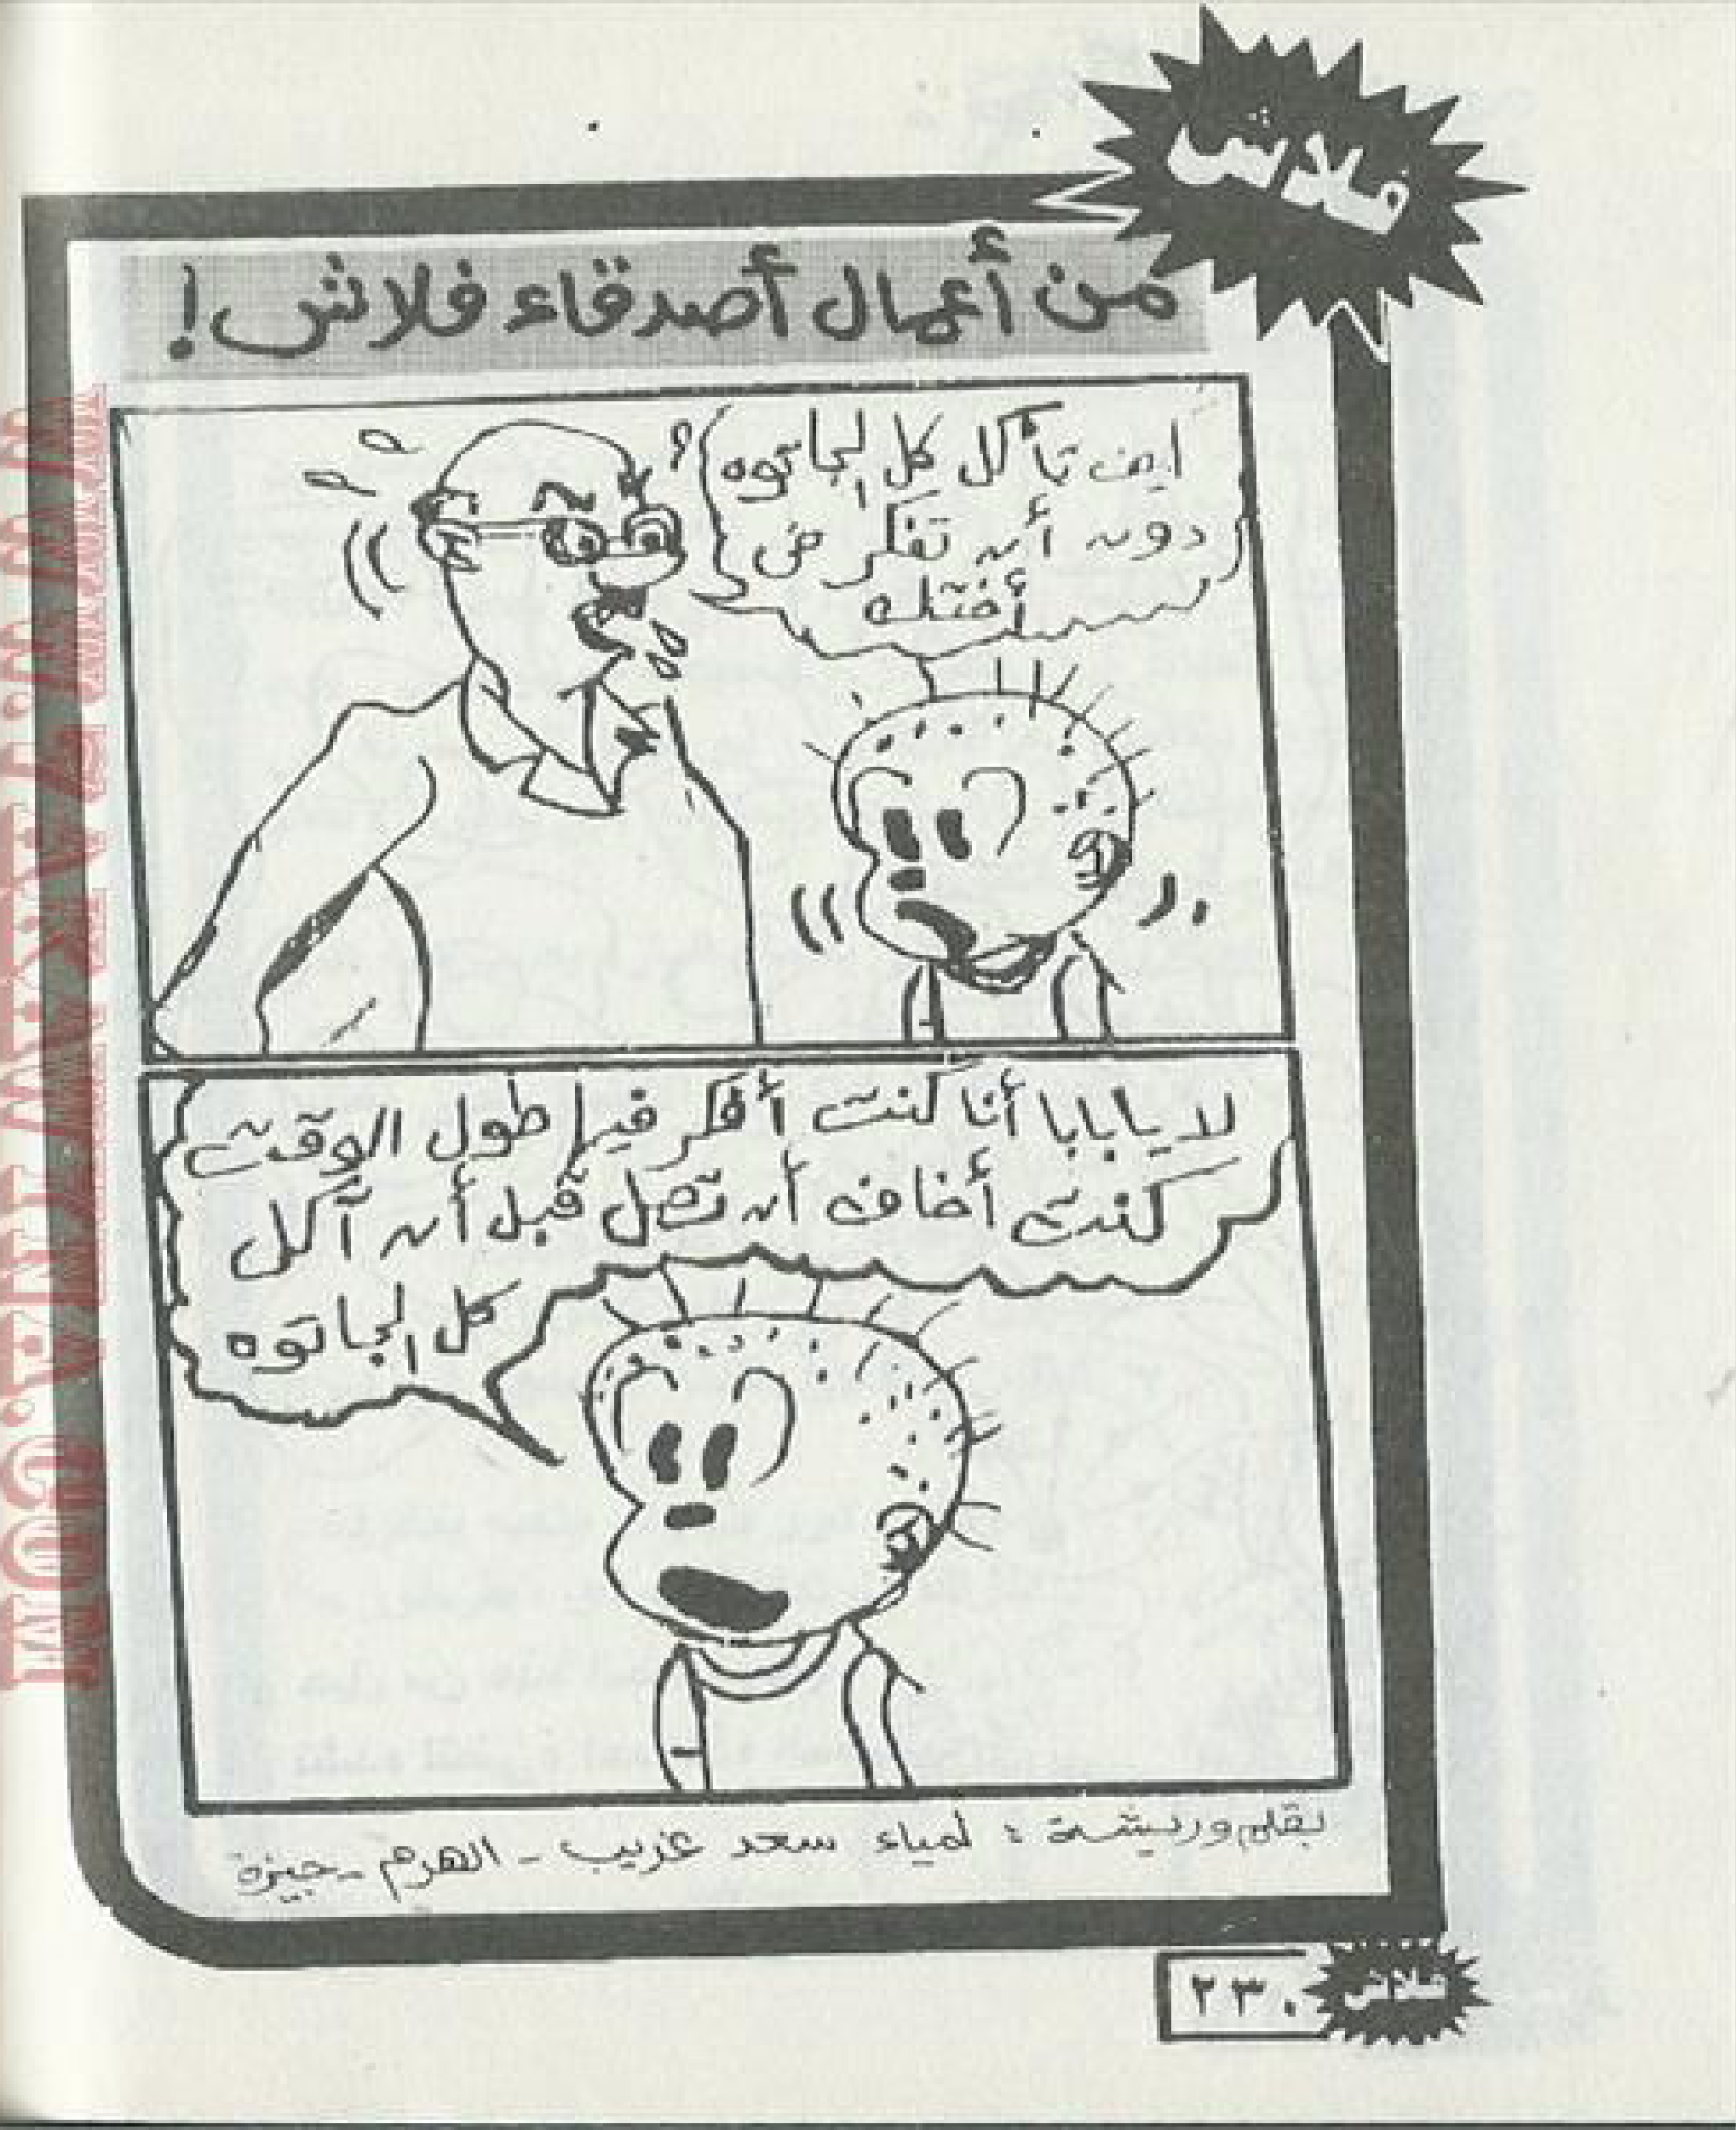 فلاش
من أعمال أصدقاء فلاش !
تأكل كل الجاتوه
دون أن تفكر في
أختك
؟
لا يا بابا أنا كنت أفكر فيها طول الوقت
كنت أخاف أن تصل قبل أن آكل
كل الجاتوه
بقلم وريشة : لمياء سعد غريب - الهرم - جيزة
٢٣٠
فلاش